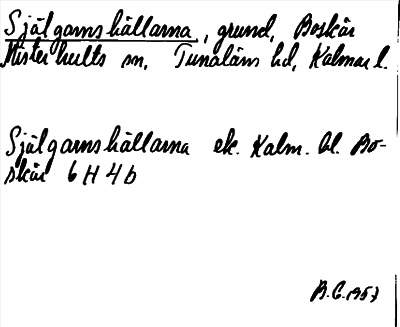 Själgarnshällarna, grund, Boskär
Misterhults sn, Tunaläns hd, Kalmar l.
Själgarnshällarna ek. Kalm. bl. Bo-
skär 6 H 4 b
B.E. 1957